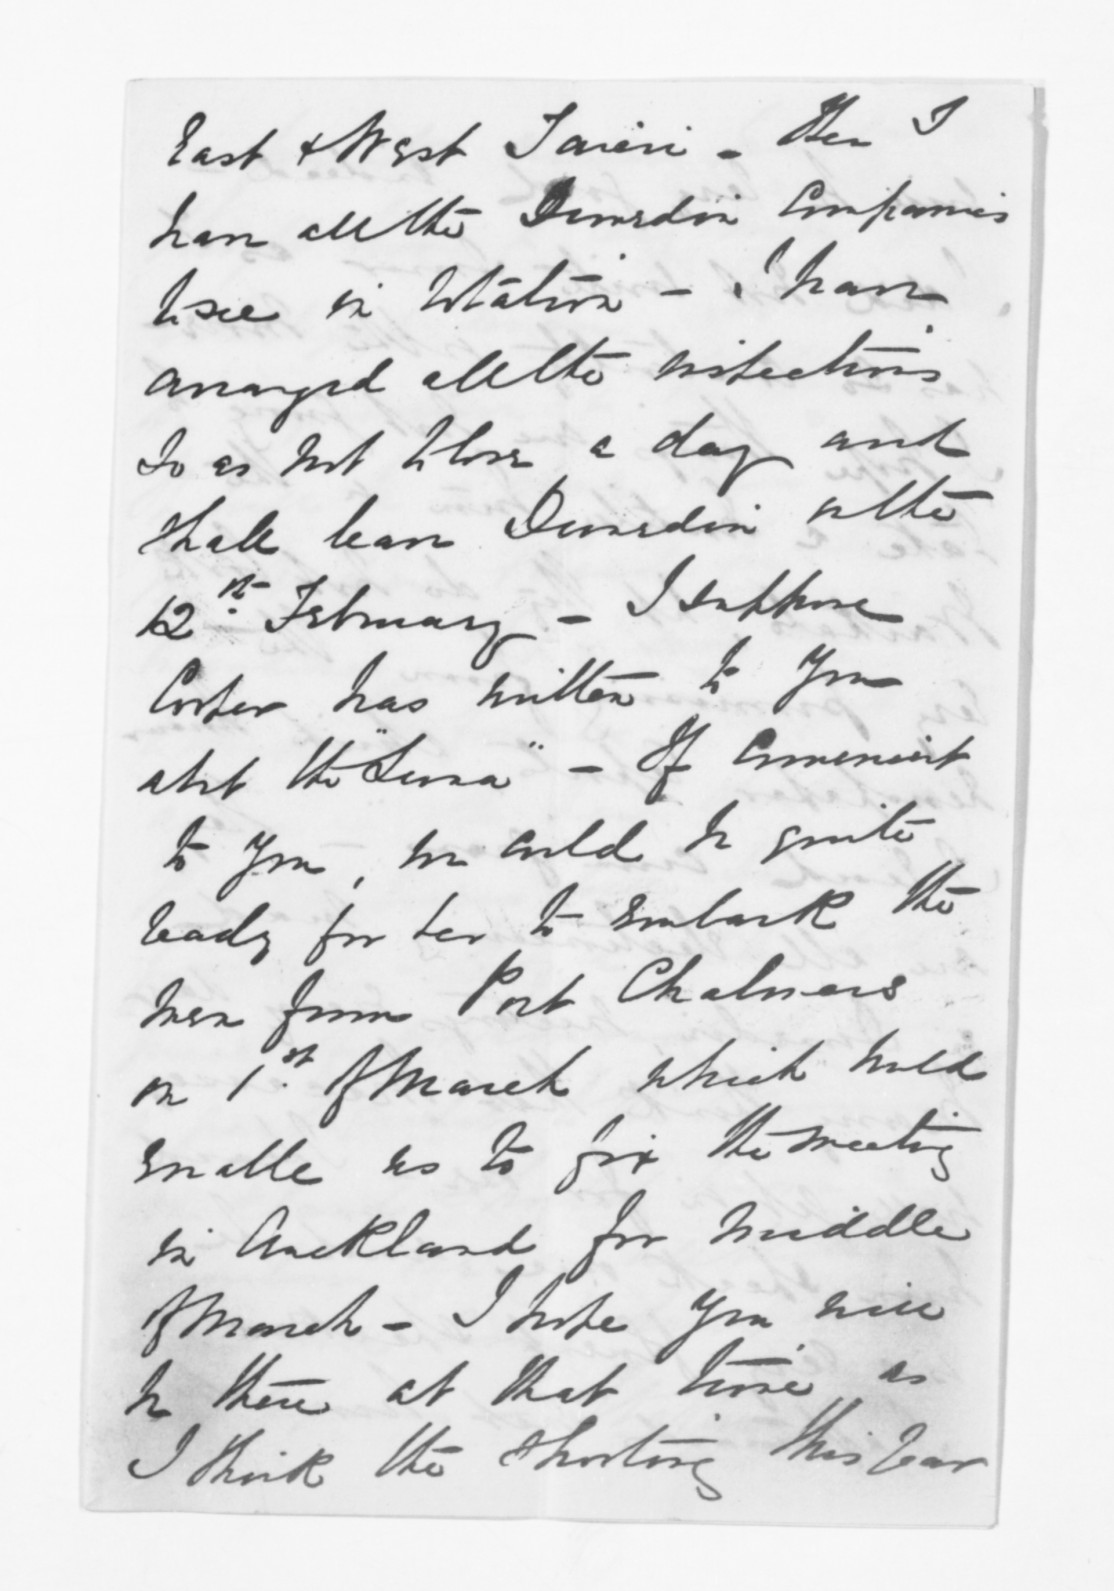 East & West Taieri - then I
have all the Dunedin Companies
to see in rotation - I have
arranged all the inspections
so as not to lose a day and
shall leave Dunedin on the
12th February - I suppose
has written to you
abt the "Luna" - If convenient
to you, we could be quite
ready for her to embark the
men from Port Chalmers
on 1st of March which would
enable us to fix the meeting
in Auckland for middle
of March - I hope you will
be there at that time as
I think the shooting this year